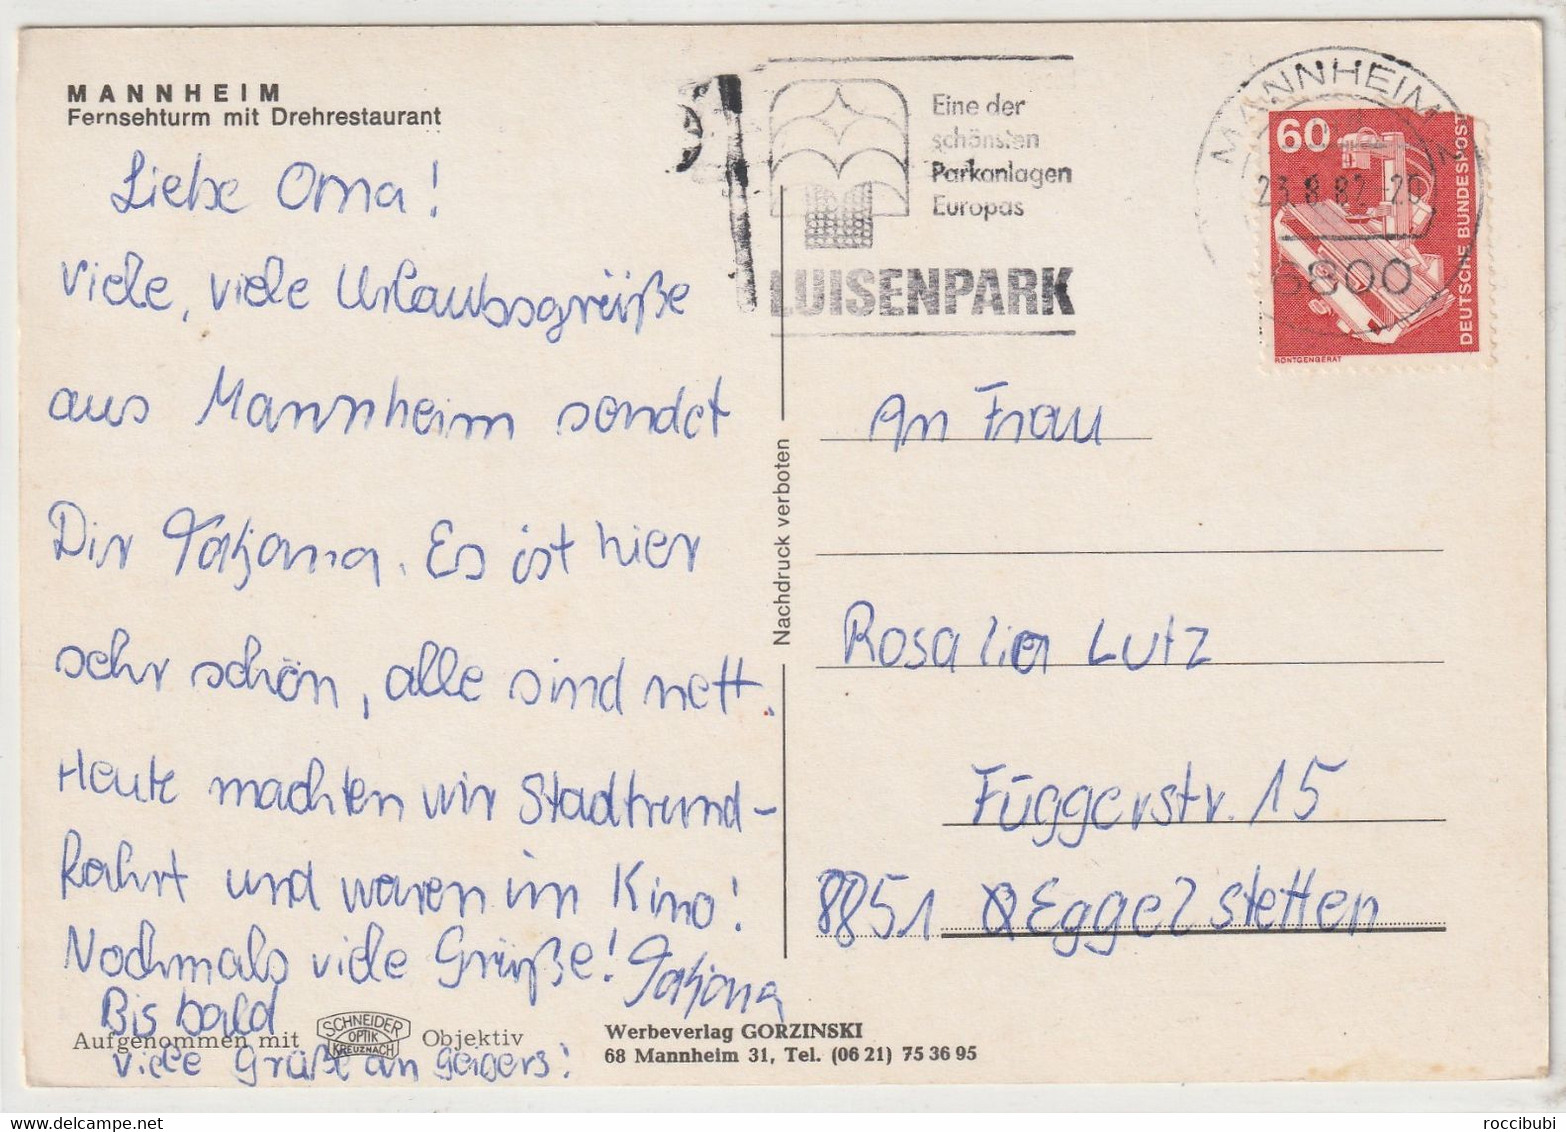 MANNHEIM
Fernsehturm mit Drehrestaurant
Liebe Oma!
viele, viele Urlaubsgrüße
aus Mannheim sendet
Dir Tatjana. Es ist hier
sehr schön, alle sind nett.
Heute machten wir Stadtrund-
fahrt und waren im Kino!
Nochmals viele Grüße! Tatjana
Bis bald
viele Grüße an Geigers!
Aufgenommen mit SCHNEIDER OPTIK KREUZNACH Objektiv
Werbeverlag GORZINSKI
68 Mannheim 31, Tel. (06 21) 75 36 95
Nachdruck verboten
Eine der
schönsten
Parkanlagen
Europas
LUISENPARK
MANNHEIM
23.8.82-20
6800
60
DEUTSCHE BUNDESPOST
RÖNTGENGERÄT
An Frau
Rosalia Lutz
Fuggerstr. 15
8851 Eggelstetten
roccibubi